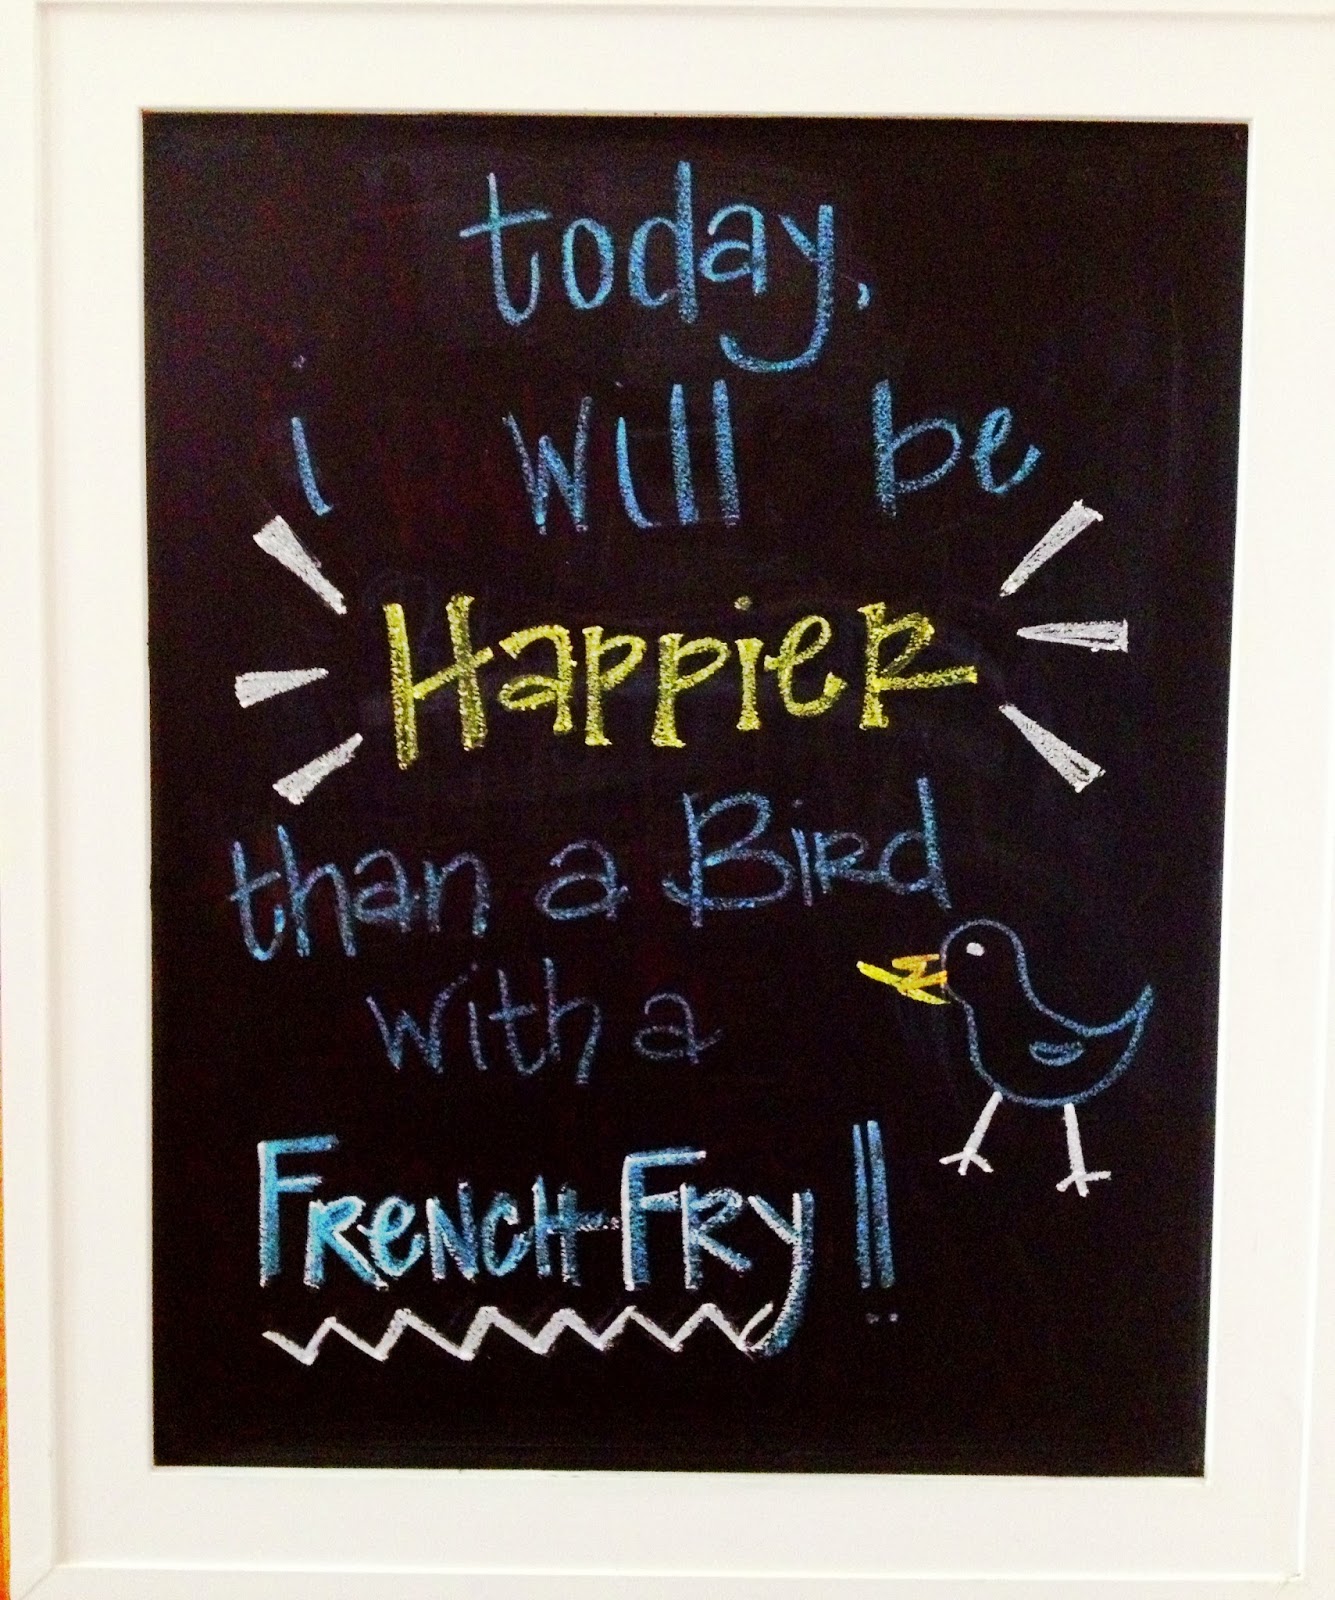 today,
i will be
Happier
than a Bird
with a
French Fry!!